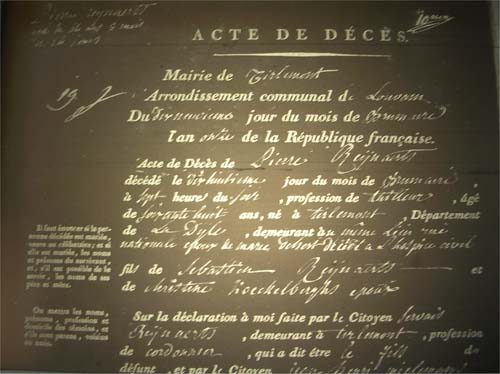 ACTE DE DÉCÈS.
Mairie de Tirlemont
Arrondissement communal de Louvain
Du dixneuvieme jour du mois de Brumaire
l'an onze de la République française.
Acte de Décès de Pierre Reijnaerts
décédé le dixhuitieme jour du mois de Brumaire ,
à sept heures du soir , profession de tailleur , âgé
de soixante huit ans, né à tirlemont , Département
de La Dyle , demeurant au même lieu rue
nationale epoux de marie décédé à l'hospice civil
fils de Sebastien Reijnaerts et
de Christine Koeckelberghs epoux
Sur la déclaration à moi faite par le Citoyen Servais
Reijnaerts , demeurant à tirlemont , profession
de cordonnier , qui a dit être le fils du
défunt , et par le Citoyen
Il faut énoncer si la personne
décédée est mariée,
veuve ou célibataire; et si
elle est mariée, les noms
et prénoms du survivant,
et, s'il est possible de le
savoir, les noms de ses
père et mère.
On mettra les noms,
prénoms, profession et
domicile des témoins, et
s'ils sont parens, voisins
ou amis.